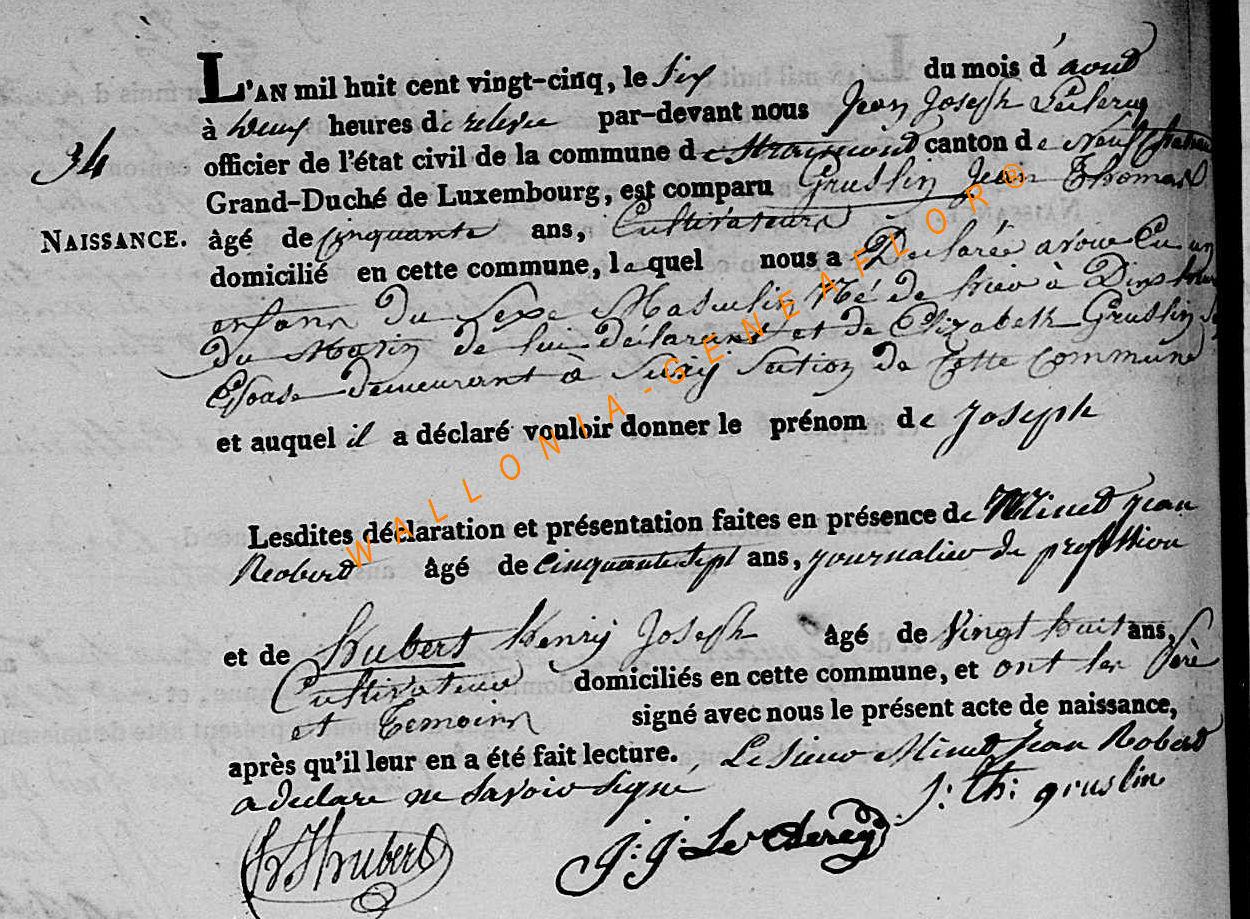 L'AN mil huit cent vingt-cinq, le Six du mois d'aout
à heures de relevée par-devant nous Jean Joseph Leclercq
officier de l'état civil de la commune de Straimont canton de Neufchateau
Grand-Duché de Luxembourg, est comparu Gruslin Jean Thomas
34
NAISSANCE.
âgé de Cinquante ans, Cultivateur
domicilié en cette commune, lequel nous a Declarée avoir Eu un
enfant du Sexe Masculin Né de hier à Dix heures
du Matin de lui déclarant et de Elizabeth Gruslin
Epouse demeurant à Suxy Section de Cette Commune
et auquel il a déclaré vouloir donner le prénom de Joseph
Lesdites déclaration et présentation faites en présence de Minet Jean
Robert âgé de cinquante sept ans, journalier de profession
et de Hubert Henry Joseph âgé de Vingt huit ans,
Cultivateur domiciliés en cette commune, et ont les Père
et Temoins signé avec nous le présent acte de naissance,
après qu'il leur en a été fait lecture. Le Sieur Minet Jean Robert
a declare ne savoir signé
J: th: gruslin
H J Hubert
J: J: Le Clercq
WALLONIA-GENEAFLOR®